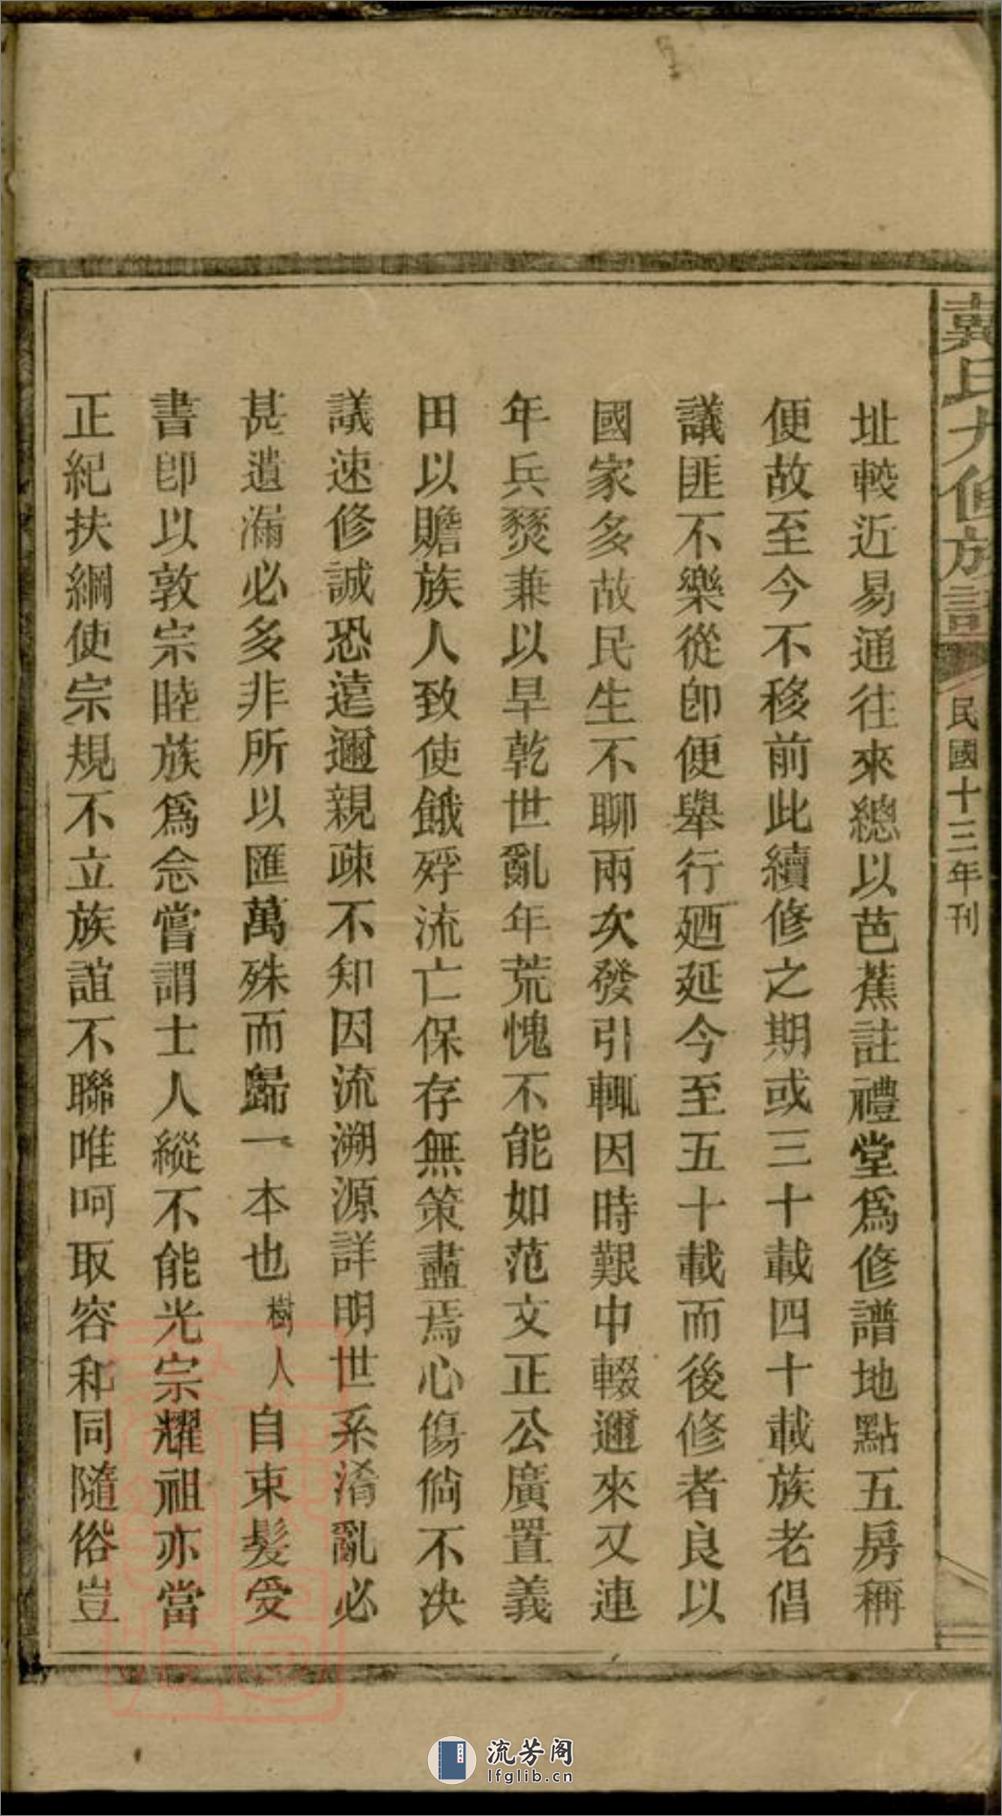 戴氏九修族譜
民國十三年刊
址較近易通往來總以芭蕉註禮堂爲修譜地點五房稱
便故至今不移前此續修之期或三十載四十載族老倡
議匪不樂從卽便舉行廼延今至五十載而後修者良以
國家多故民生不聊兩次發引輒因時艱中輟邇來又連
年兵燹兼以旱乾世亂年荒愧不能如范文正公廣置義
田以贍族人致使餓殍流亡保存無策藎焉心傷倘不决
議速修誠恐遠邇親疎不知因流溯源詳明世系淆亂必
甚遺漏必多非所以匯萬殊而歸一本也樹人自束髮受
書卽以敦宗睦族爲念嘗謂士人縱不能光宗耀祖亦當
正紀扶綱使宗規不立族誼不聯唯呵取容和同隨俗豈
流芳阁
lfglib.cn